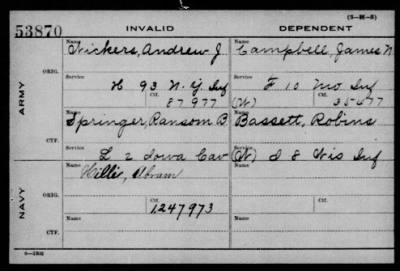 (3-M-5)
53870 INVALID DEPENDENT
ARMY
ORIG.
Name Vickers, Andrew J. Name Campbell, James N
Service H 93 N. Y. Inf Service F 10 Mo Inf
Ctf. 87977 (W) Ctf. 35677
CTF.
Name Springer, Ransom B. Name Bassett, Robins
Service L 2 Iowa Cav Service (W) I 8 Wis Inf
NAVY
ORIG.
Name Hillis, Abram Name
Ctf. 1247973 Ctf.
CTF.
Name Name